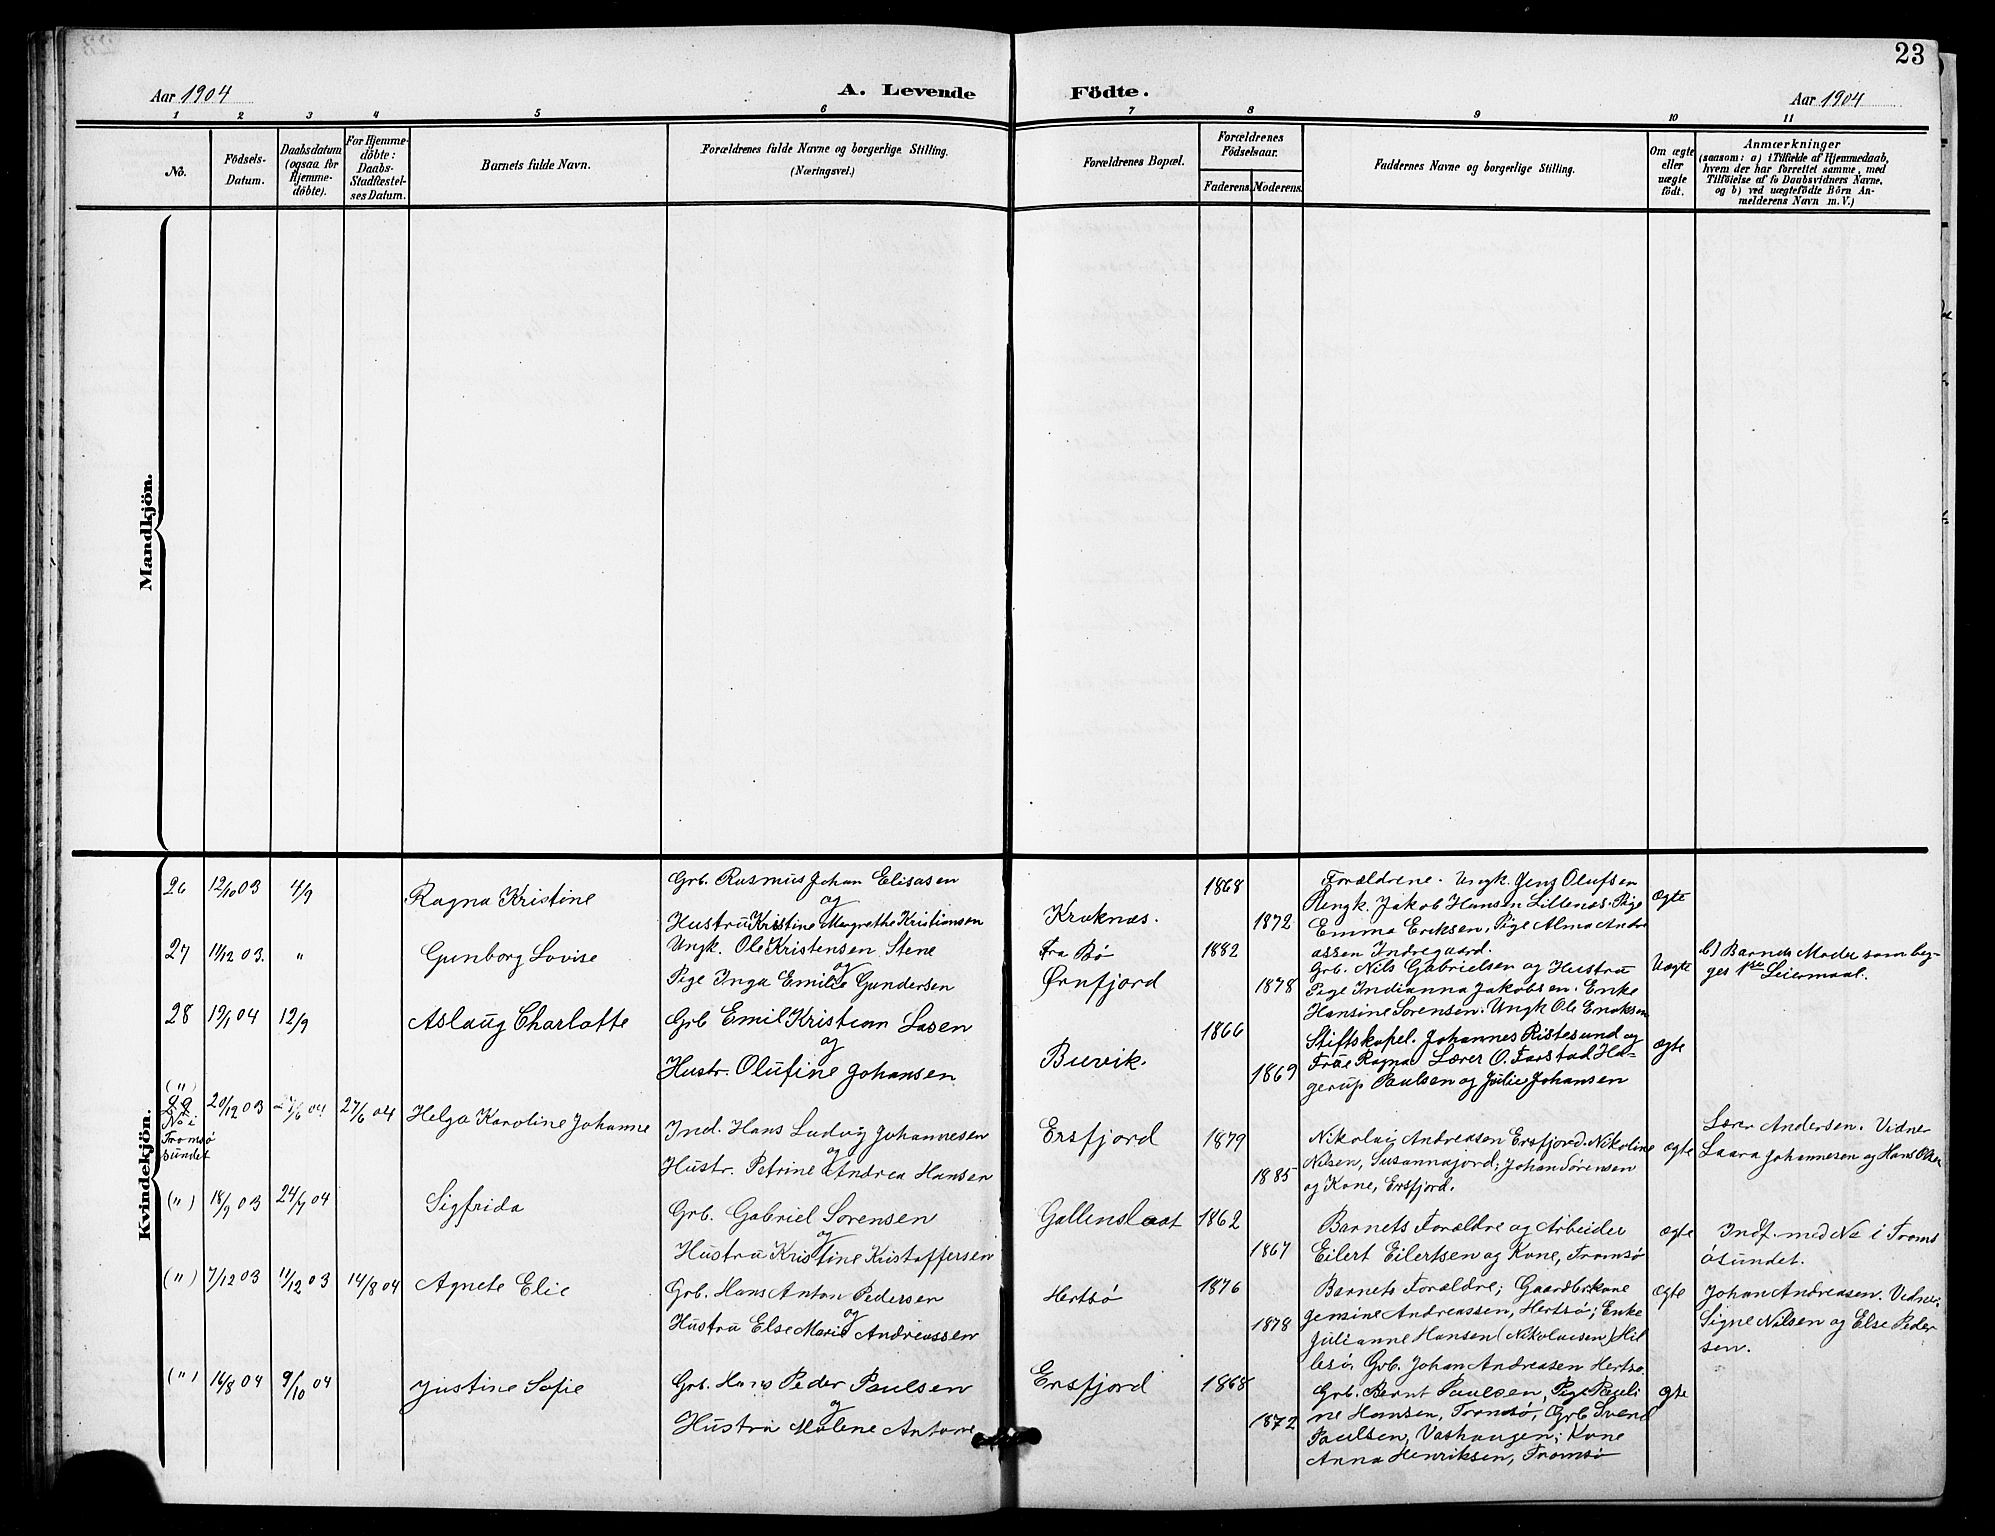 23
Aar 1904
A. Levende Födte.
Aar 1904
1 2 3 4 5 6 7 8 9 10 11
No.
Födsels-
Datum.
Daabsdatum
(ogsaa for
Hjemme-
döbte).
For Hjemme-
döbte:
Daabs-
Stadfæstel-
ses Datum.
Barnets fulde Navn.
Forældrenes fulde Navne og borgerlige Stilling.
(Næringsvei.)
Forældrenes Bopæl.
Forældrenes
Födselsaar.
Faderens. Moderens.
Faddernes Navne og borgerlige Stilling.
Om ægte
eller
uægte
födt.
Anmærkninger
(saasom: a) i Tilfælde af Hjemmedaab,
hvem der har forrettet samme, med
Tilföielse af to Daabsvidners Navne,
og b) ved uægtefödte Börn An-
melderens Navn m. V.)
Mandkjön.
Kvindekjön.
26 12/10 03 4/9
Ragna Kristine
Grb. Rasmus Johan Elisasen
og
Hustru Kristine Margrethe Kristiansen
Kraknæs.
1868
1872
Forældrene. Ungk. Jens Olufsen
Ungk. Jakob Hansen Lillenæs. Pige
Emma Eriksen, Pige Alma Andre
assen Indregaard.
ægte
27 11/12 03. "
Gunborg Lovise
Ungk. Ole Kristensen Stene
og
Pige Inga Emilie Gundersen
fra Bø
Ørnfjord
1882
1878
Grb. Nils Gabrielsen og Hustru
Pige Indianna Jakobsen. Enke
Hansine Sørensen. Ungk Ole Eriksen
Uægte
b) Barnets Moder som be-
ges 1ste Leiermaal.
28 19/1 04 12/9
Aslaug Charlotte
Grb Emil Kristian Lasen
og
Hustr. Olufine Johansen
Buvik.
1866
1869
Stiftskapel. Johannes Ristesund og
Frue Ragna Lærer O. Farstad Ha-
gerup Paulsen og Julie Johansen
ægte
(")
29
No i
Tromsø
sundet
20/12 03 27/6 04 27/6 04
Helga Karoline Johanne
Ind. Hans Ludvig Johannesen
og
Hustr. Petrine Andrea Hansen
Ersfjord
1879
1885
Nikolai Andreasen Ersfjord. Nikoline
Nilsen, Susannajord; Johan Sørensen
og Kone, Ersfjord.
ægte
Lærer Andersen. Vidner
Laara Johannesen og Hans Olsen
(") 18/9 03 24/7 04
Sigfrida
Grb. Gabriel Sørensen
og
Hustru Kristine Kristoffersen
1862
1867
Barnets Forældre og Arbeider
Eilert Eilertsen og Kone, Tromsø
ægte
Indf. med No i Troms
øsundet.
(") 7/12 03 11/12 03 14/8 04
Agnete Elie
Grb. Hans Anton Pedersen
og
Hustru Else Marie Andreassen
Hertsø
1876
1878
Barnets Forældre; Gaardbrkone
Gemine Andreassen, Hertsø; Enke
Julianne Hansen (Nikolaisen) Hil
lesø. Grb. Johan Andreasen Hertsø.
ægte
Johan Andreasen. Vidner:
Signe Nilsen og Else Peder
sen.
(") 14/8 04 9/10 04
Justine Sofie
Grb. Hans Peder Paulsen
og
Hustru Malene Antone
Ersfjord
1868
1872
Grb. Bernt Paulsen, Pige Pauli
ne Hansen, Tromsø, Grb Svend
Paulsen, Vashaugen; Kone
Anna Henriksen, Tromsø
ægte